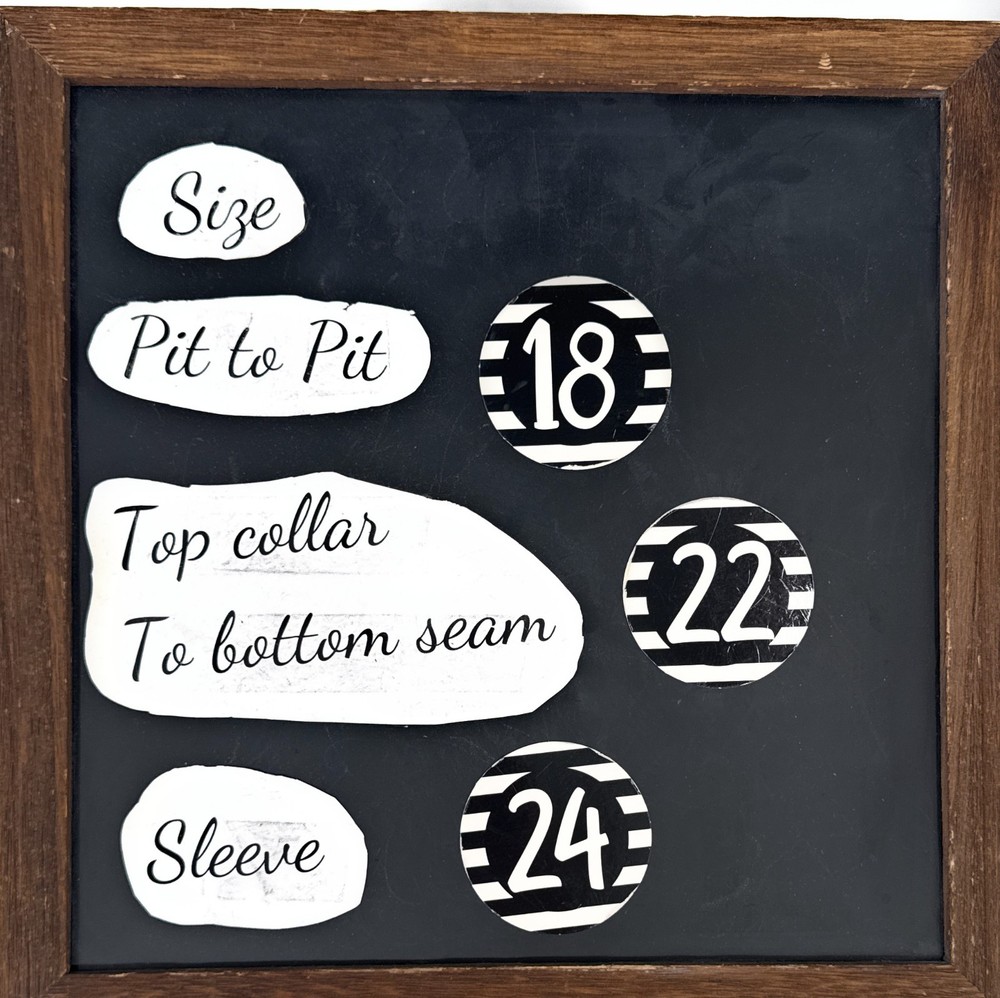 Size
Pit to Pit 18
Top collar
To bottom seam 22
Sleeve 24